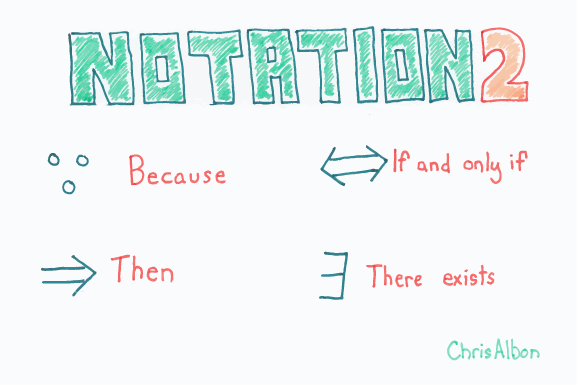 NOTATION 2
∵ Because
⇔ If and only if
⇒ Then
∃ There exists
ChrisAlbon